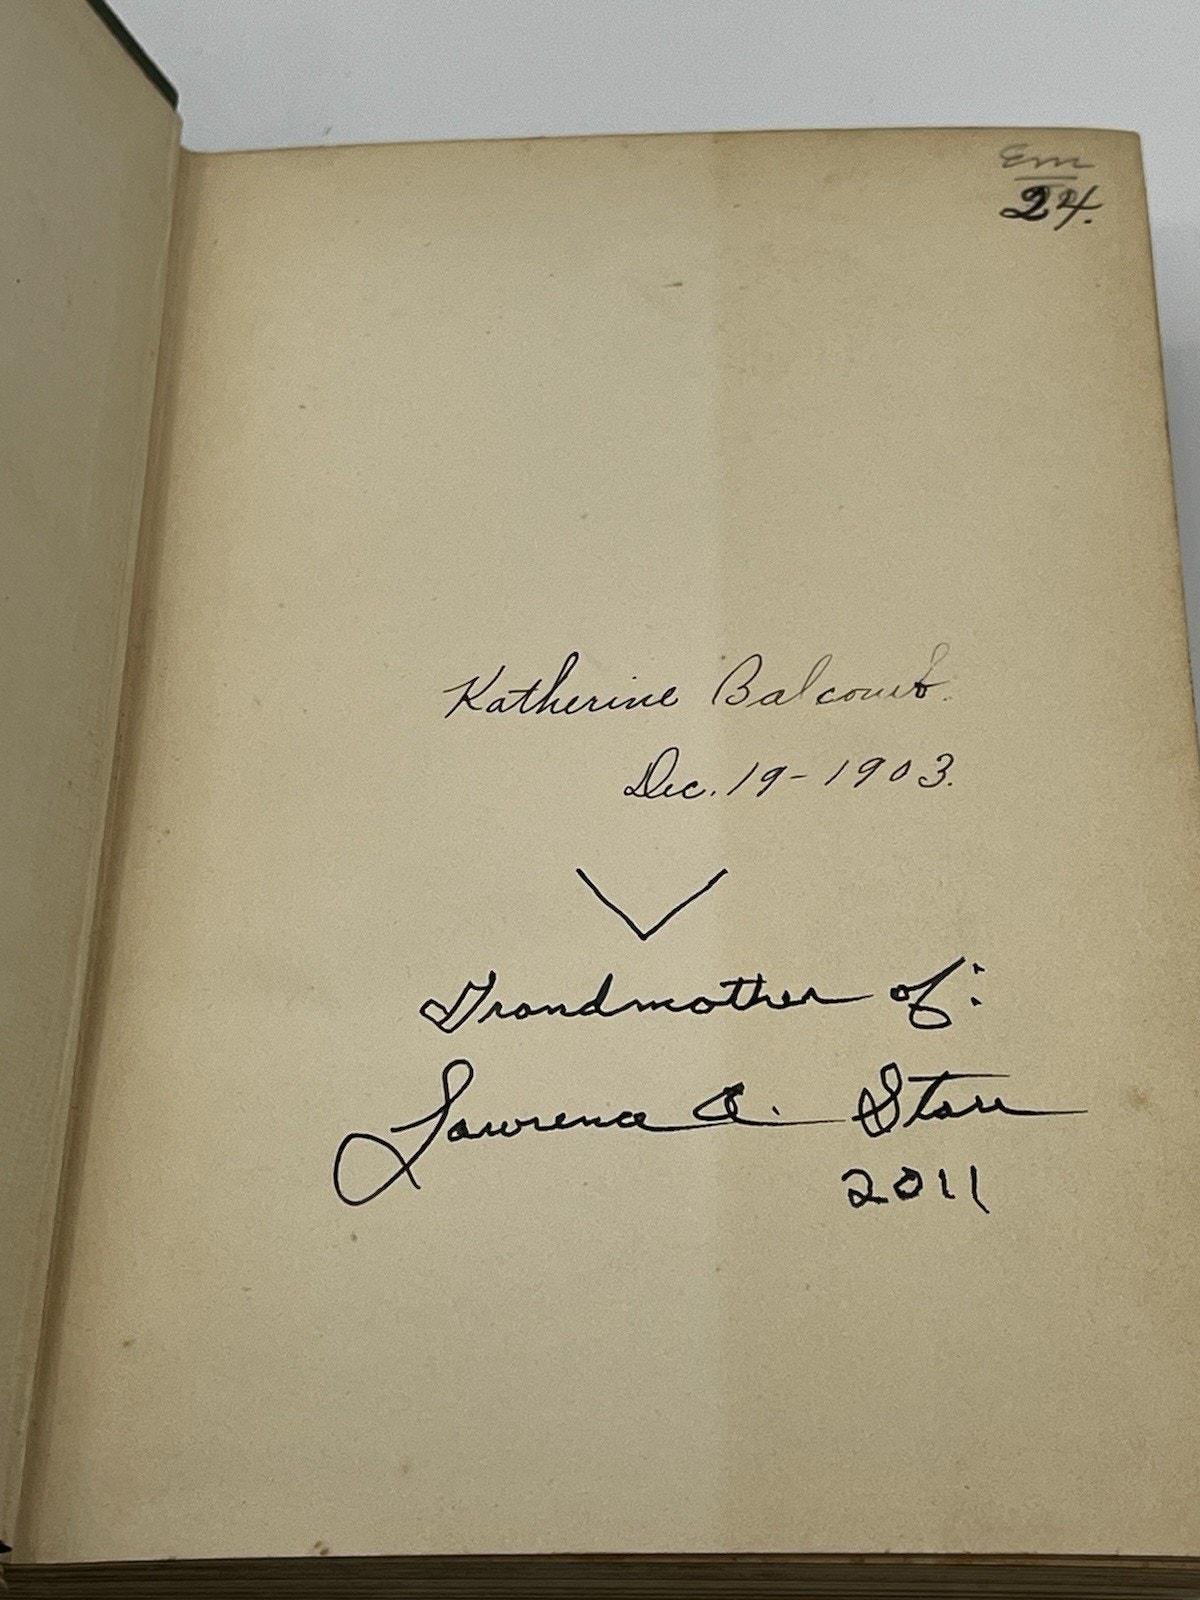 Em
24.
Katherine Balcomb.
Dec. 19-1903.
Grandmother of:
Lawrence C. Starr
2011